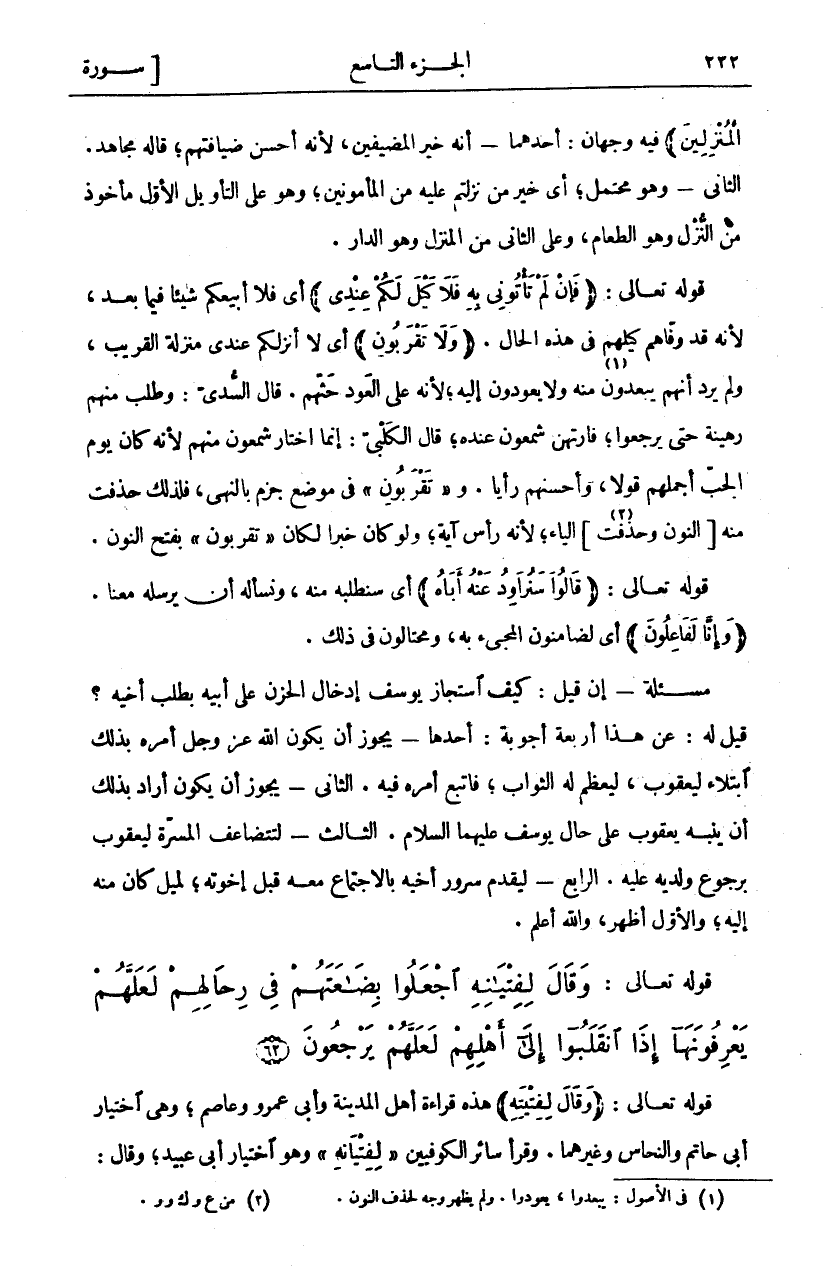 ٢٢٢ الجـزء التـاسع [ ســورة
الْمُنْزِلِينَ ﴾ فيه وجهان : أحدهما — أنه خير المضيفين، لأنه أحسن ضيافتهم؛ قاله مجاهد.
الثانى — وهو محتمل؛ أى خير من نزلتم عليه من المأمونين؛ وهو على التأويل الأوّل مأخوذ
من النُّزْل وهو الطعام، وعلى الثانى من المنزل وهو الدار .
قوله تعـالى : ﴿ فَإِنْ لَمْ تَأْتُونِى بِهِ فَلَا كَيْلَ لَكُمْ عِنْدِى ﴾ أى فلا أبيعكم شيئا فيما بعـد ،
لأنه قد وفّاهم كيلهم فى هذه الحال . ﴿ وَلَا تَقْرَبُونِ ﴾ أى لا أنزلكم عندى منزلة القريب ،
ولم يرد أنهم يبعدون(١) منه ولا يعودون إليه؛ لأنه على العَود حَثّهم . قال السُّدىّ : وطلب منهم
رهينة حتى يرجعوا؛ فارتهن شمعون عنده؛ قال الكَلْبىّ : إنما اختار شمعون منهم لأنه كان يوم
الجبّ أجملهم قولا، وأحسنهم رأيا . و « تَقْرَبُونِ » فى موضع جزم بالنهى، فلذلك حذفت
منه [ النون وحذفت(٢) ] الياء؛ لأنه رأس آية؛ ولو كان خبرا لكان « تقربون » بفتح النون .
قوله تعـالى : ﴿ قَالُوا سَنُرَاوِدُ عَنْهُ أَبَاهُ ﴾ أى سنطلبه منه ، ونسأله أن يرسله معنا .
﴿ وَإِنَّا لَفَاعِلُونَ ﴾ أى لضامنون المجىء به، ومحتالون فى ذلك .
مســئلة — إن قيل : كيف ٱستجاز يوسف إدخال الحزن على أبيه بطلب أخيه ؟
قيل له : عن هـذا أربعة أجوبة : أحدها — يجوز أن يكون الله عز وجل أمره بذلك
ٱبتلاء ليعقوب ، ليعظم له الثواب ؛ فاتبع أمره فيه . الثانى — يجوز أن يكون أراد بذلك
أن ينبـه يعقوب على حال يوسف عليهما السلام . الثـالث — لتتضاعف المسرّة ليعقوب
برجوع ولديه عليه . الرابع — ليقدم سرور أخيه بالاجتماع معـه قبل إخوته؛ لميل كان منه
إليه؛ والأوّل أظهر، والله أعلم .
قوله تعـالى : وَقَالَ لِفِتْيَـٰنِهِ ٱجْعَلُوا بِضَـٰعَتَهُمْ فِى رِحَالِهِمْ لَعَلَّهُمْ
يَعْرِفُونَهَآ إِذَا ٱنقَلَبُوٓا إِلَىٰٓ أَهْلِهِمْ لَعَلَّهُمْ يَرْجِعُونَ ٦٢
قوله تعـالى : ﴿وَقَالَ لِفِتْيَتِهِ﴾ هذه قراءة أهل المدينة وأبى عمرو وعاصم ؛ وهى ٱختيار
أبى حاتم والنحاس وغيرهما . وقرأ سائر الكوفيين « لِفِتْيَانِهِ » وهو ٱختيار أبى عبيد؛ وقال :
(١) فى الأصول : يبعدوا ، يعودوا . ولم يظهر وجه لحذف النون . (٢) من ع و ك و و .